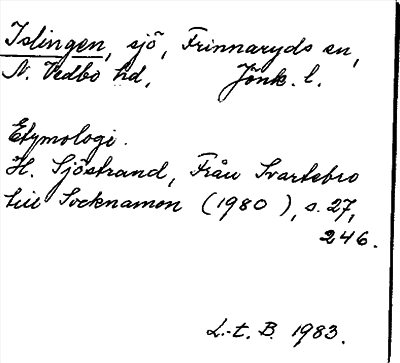 Islingen, sjö, Frinnaryds sn,
N. Vedbo hd, Jönk. l.
Etymologi.
H. Sjöstrand, Från Svartebro
till Socknamon (1980), s. 27,
246.
L.-t. B. 1983.